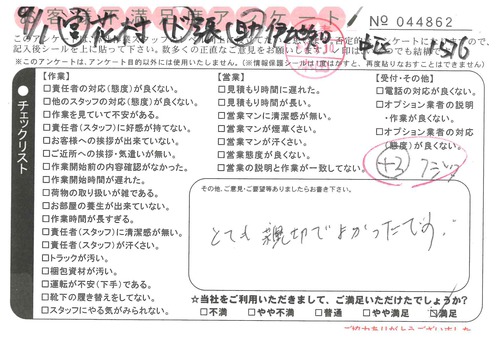 お客様不満足度アンケート
№ 044862
※このアンケートは、アンケート目的以外には使用いたしません。(※情報保護シールは1度はなすと、再度貼りなおすことはできません)
チェックリスト
【作業】
□責任者の対応(態度)が良くない。
□他のスタッフの対応(態度)が良くない。
□作業を見ていて不安がある。
□責任者(スタッフ)に好感が持てない。
□お客様への挨拶が出来ていない。
□ご近所への挨拶・気遣いが無い。
□作業開始前の内容確認がなかった。
□作業開始時間が遅れた。
□荷物の取り扱いが雑である。
□お部屋の養生が出来ていない。
□作業時間が長すぎる。
□責任者(スタッフ)に清潔感が無い。
□責任者(スタッフ)が汗くさい。
□トラックが汚い。
□梱包資材が汚い。
□運転が不安(下手)である。
□靴下の履き替えをしてない。
□スタッフにやる気がみられない。
【営業】
□見積もり時間に遅れた。
□見積もり時間が長い。
□営業マンに清潔感が無い。
□営業マンが煙草くさい。
□営業マンが汗くさい。
□営業態度が良くない。
□営業の説明と作業が一致してない。
【受付・その他】
□電話の対応が良くない。
□オプション業者の説明
・作業が良くない。
□オプション業者の対応
(態度)が良くない。
その他、ご意見・ご要望等ありましたらお書き下さい。
とても親切でよかったです。
☆当社をご利用いただきまして、ご満足いただけたでしょうか?
□不満 □やや不満 □普通 □やや満足 ☑満足
ご協力ありがとうございました